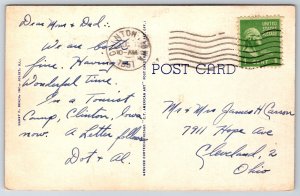 Dear Mom & Dad:
We are both
fine. Having
Wonderful time.
In a Tourist
Camp, Clinton, Iowa
now. A Letter follows
Dot & Al.
CLINTON
IOWA
1951
POST CARD
UNITED STATES
Mr & Mrs James H Carson
7911 Hope Ave
Cleveland, 2
Ohio